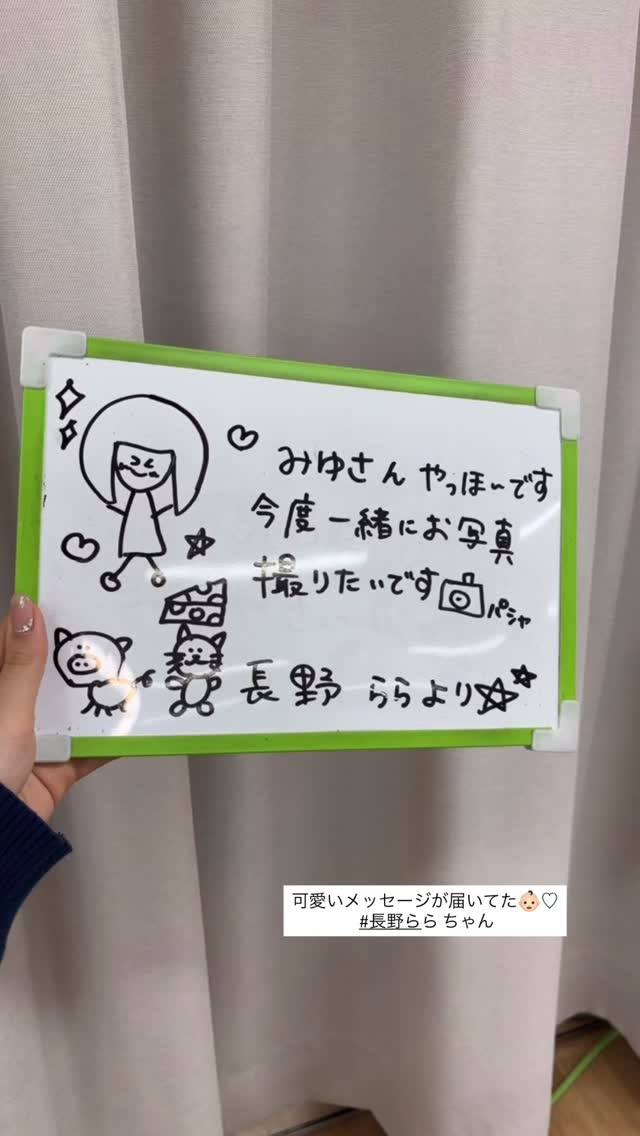 みゆさん やっほいです
今度一緒にお写真
撮りたいです
パシャ
長野 ららより
可愛いメッセージが届いてた👶🏻♡
#長野らら ちゃん